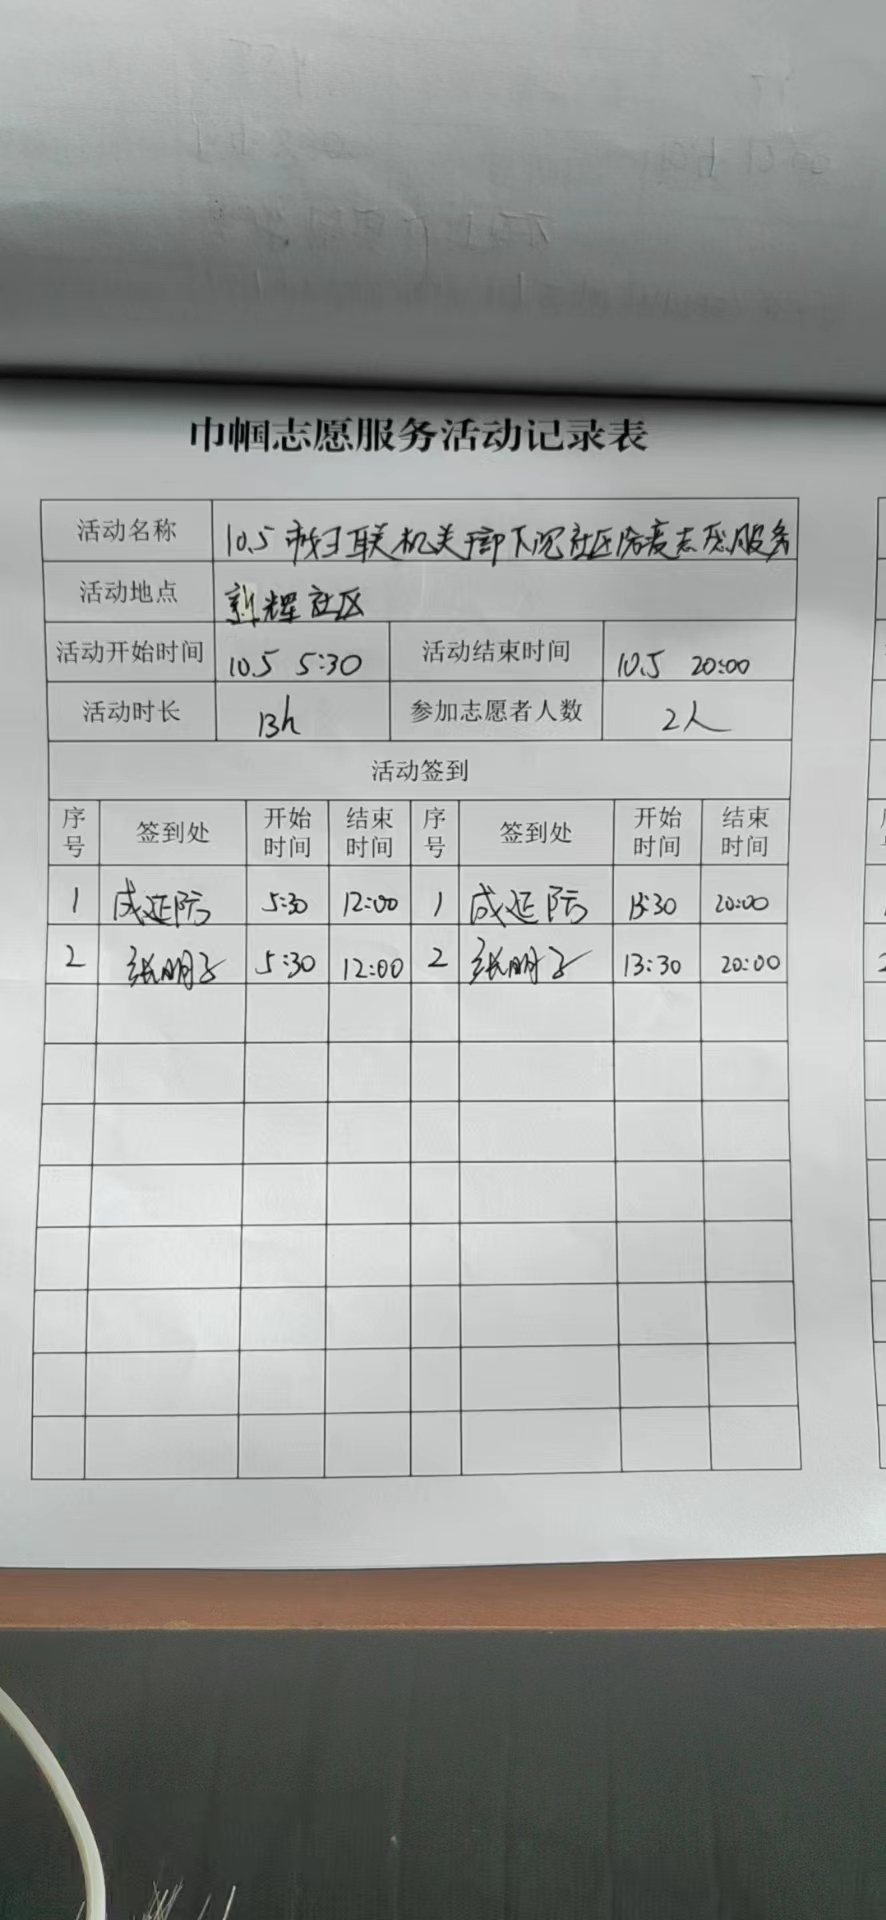 巾帼志愿服务活动记录表
活动名称 10.5 市妇联机关干部下沉社区防疫志愿服务
活动地点 新辉社区
活动开始时间 10.5 5:30 活动结束时间 10.5 20:00
活动时长 13h 参加志愿者人数 2人
活动签到
序号 签到处 开始时间 结束时间 序号 签到处 开始时间 结束时间
1 成延 5:30 12:00 1 成延 13:30 20:00
2 张明子 5:30 12:00 2 张明子 13:30 20:00